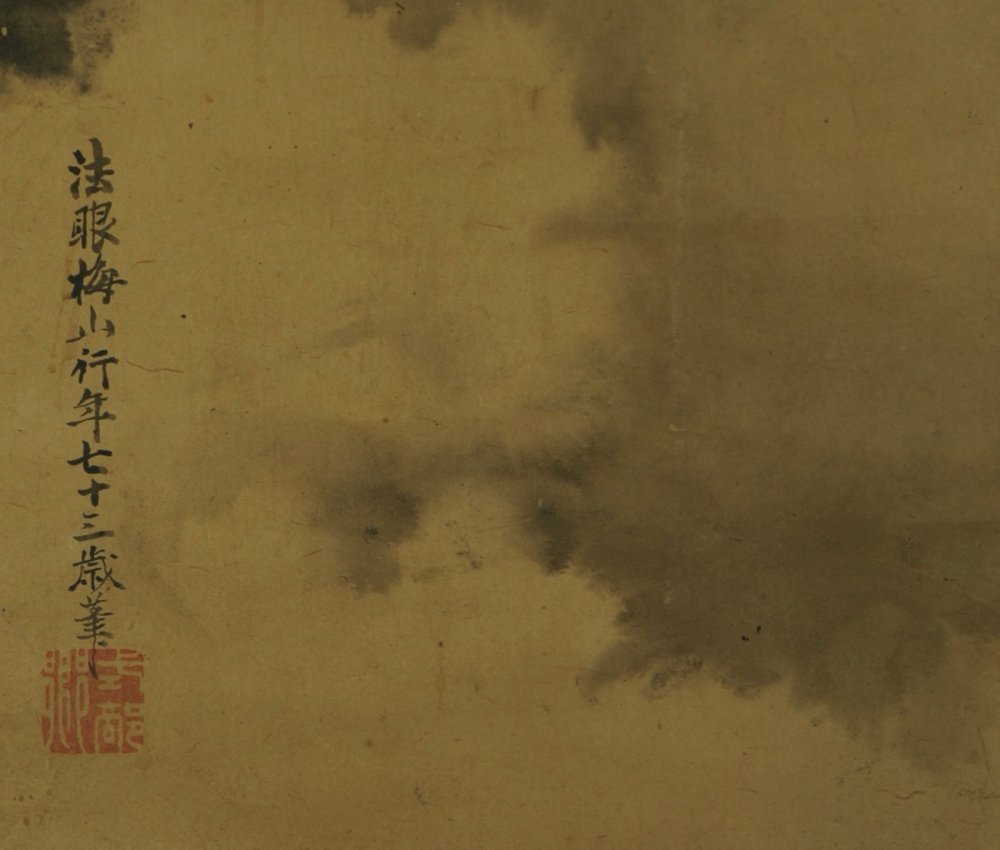 法眼梅山行年七十三歳筆